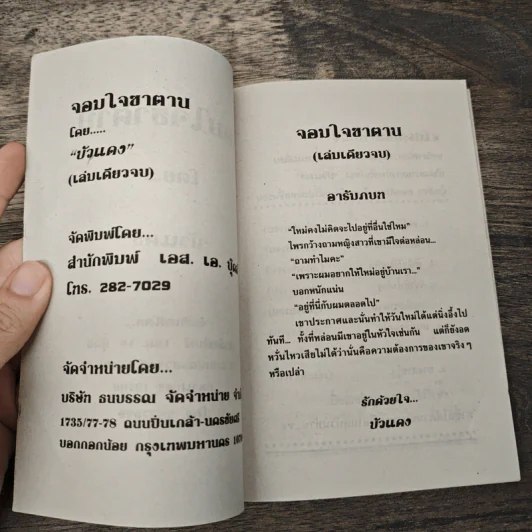 จอมใจซาตาน
โดย.....
“บัวแดง”
(เล่มเดียวจบ)
จัดพิมพ์โดย...
สำนักพิมพ์ เอส. เอ.
โทร. 282-7029
จัดจำหน่ายโดย...
บริษัท ธนบรรณ จัดจำหน่าย
1735/77-78 ถนนปิ่นเกล้า-นครชัยศรี
บางกอกน้อย กรุงเทพมหานคร
จอมใจซาตาน
(เล่มเดียวจบ)
อารัมภบท
“ใหม่คงไม่คิดจะไปอยู่ที่อื่นใช่ไหม”
ไพรกว้างถามหญิงสาวที่เขามีใจต่อหล่อน...
“ถามทำไมคะ”
“เพราะผมอยากให้ใหม่อยู่บ้านเรา...”
บอกหนักแน่น
“อยู่ที่นี่กับผมตลอดไป”
เขาประกาศและนั่นทำให้วันใหม่ได้แต่นิ่งอึ้งไป
ทันที... ทั้งที่หล่อนมีเขาอยู่ในหัวใจเช่นกัน แต่ก็ยังอด
หวั่นไหวเสียไม่ได้ว่านั่นคือความต้องการของเขาจริง ๆ
หรือเปล่า
รักด้วยใจ...
บัวแดง